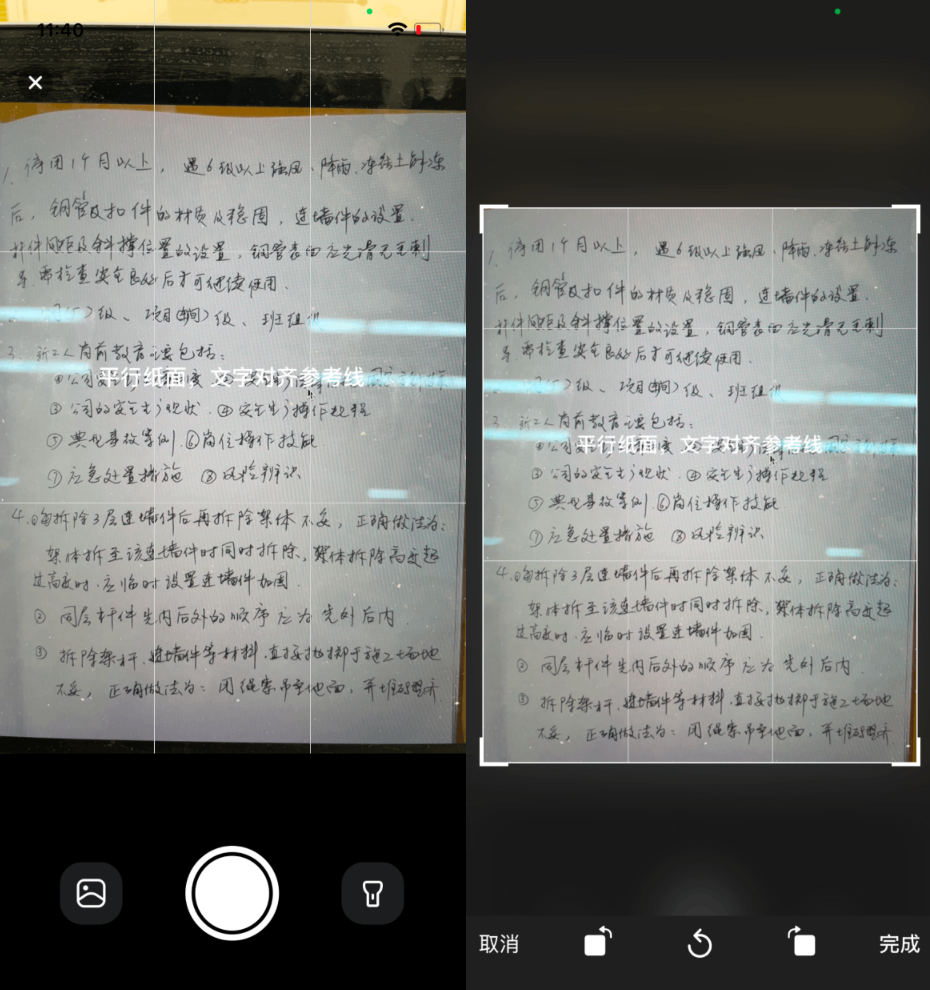 11:40
1. 停用1个月以上，遇6级以上强风、降雨、冻结土解冻
后，钢管及扣件的材质及稳固，连墙件的设置.
杆件间距及斜撑位置的设置，钢管表面应光滑无毛刺
等 需检查安全良好后才可继续使用.
级、项目(部)级、班组
3. 新工人岗前教育应包括：
①公司
平行纸面，文字对齐参考线
③ 公司的安全生产现状. ④安全生产操作规程
⑤ 典型事故案例. ⑥岗位操作技能
⑦ 应急处置措施 ⑧风险辨识
4. ①每拆除3层连墙件后再拆除架体不妥，正确做法为：
架体拆至该连墙件时同时拆除，架体拆除高度超
过高度时.应临时设置连墙件加固.
② 同层杆件先内后外的顺序应为先外后内
③ 拆除架杆、连墙件等材料.直接抛掷于施工场地
不妥，正确做法为：用绳索吊至地面，并堆码整齐
1. 停用1个月以上，遇6级以上强风、降雨、冻结土解冻
后，钢管及扣件的材质及稳固，连墙件的设置.
杆件间距及斜撑位置的设置，钢管表面应光滑无毛刺
等 需检查安全良好后才可继续使用.
级、项目(部)级、班组
3. 新工人岗前教育应包括：
①公司
平行纸面，文字对齐参考线
③ 公司的安全生产现状. ④安全生产操作规程
⑤ 典型事故案例. ⑥岗位操作技能
⑦ 应急处置措施 ⑧风险辨识
4. ①每拆除3层连墙件后再拆除架体不妥，正确做法为：
架体拆至该连墙件时同时拆除，架体拆除高度超
过高度时.应临时设置连墙件加固.
② 同层杆件先内后外的顺序应为先外后内
③ 拆除架杆、连墙件等材料.直接抛掷于施工场地
不妥，正确做法为：用绳索吊至地面，并堆码整齐
取消
完成